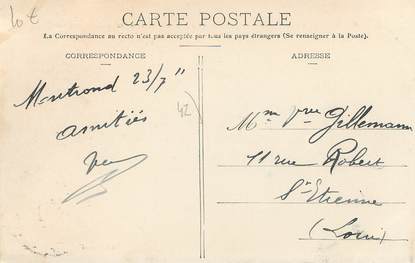 10 €
CARTE POSTALE
La Correspondance au recto n'est pas acceptée par tous les pays étrangers (Se renseigner à la Poste).
CORRESPONDANCE
ADRESSE
Montrond 23/7 "
amitiés
42
Mm Vve Gillemann
11 rue Robert
St Etienne
(Loire)